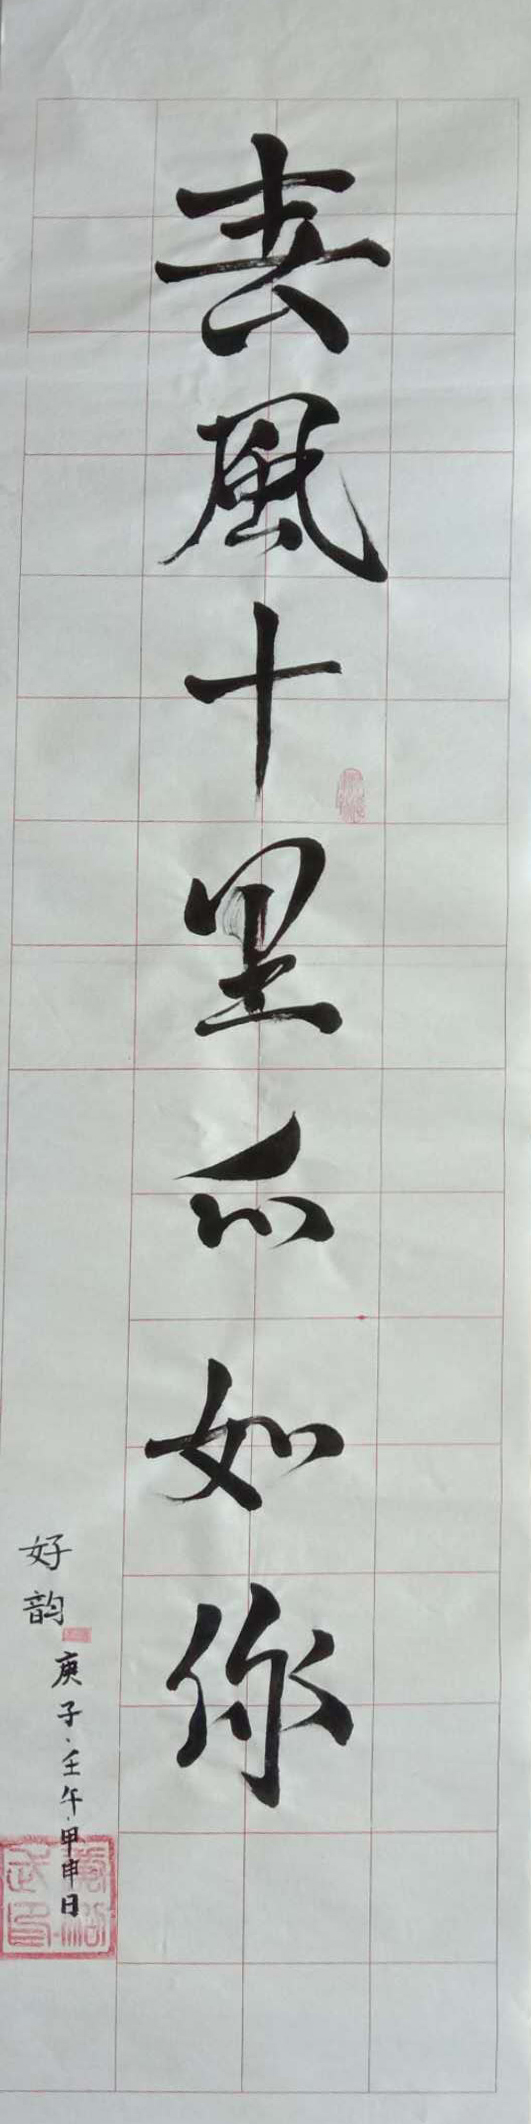 春風十里不如你
好韵
庚子·壬午·甲申日